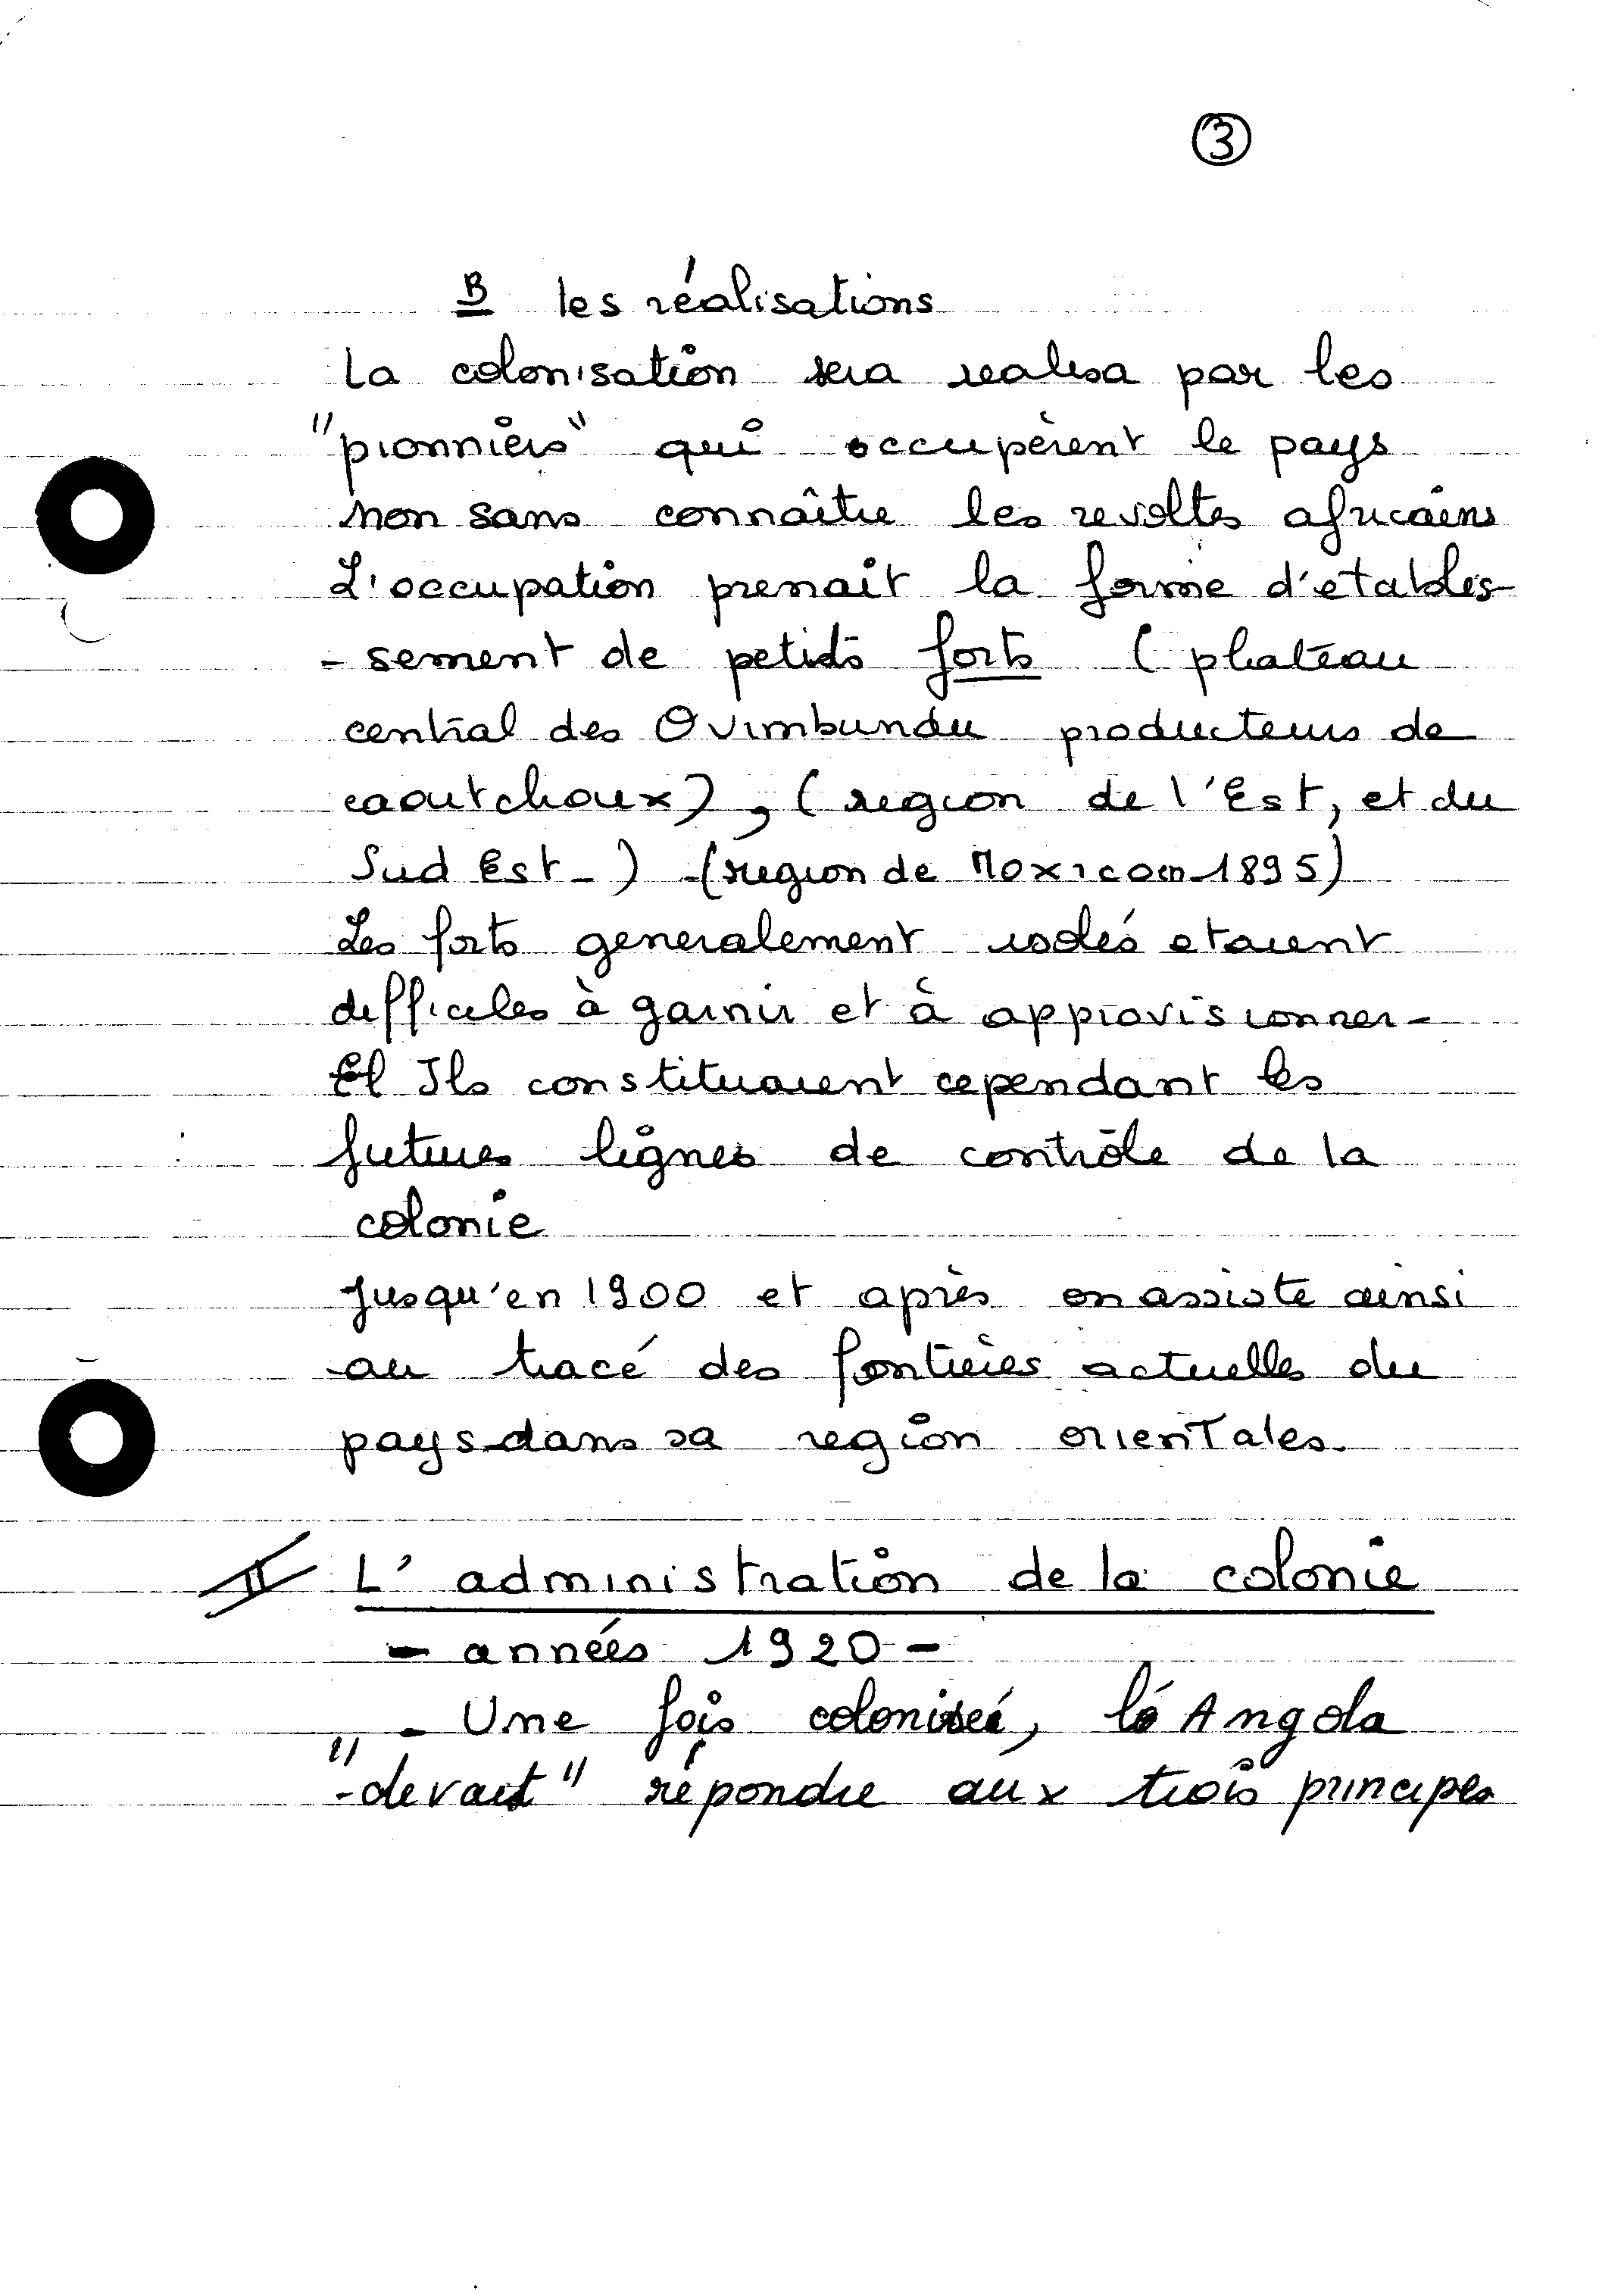 ③
B les réalisations
La colonisation sera realisa par les
"pionniers" qui occupèrent le pays
non sans connaître les revoltes africains
L'occupation prenait la forme d'etablis-
- sement de petits forts (plateau
central des Ovimbundu producteurs de
caoutchoux), (region de l'Est, et du
Sud Est-) (region de Moxico en 1895)
Les forts generalement isolés etaient
difficiles à garnir et à approvisionner-
Ils constituaient cependant les
futures lignes de contrôle de la
colonie
Jusqu'en 1900 et après on assiste ainsi
au tracé des fontières actuelles du
pays dans sa region orientales.
II L'administration de la colonie
- années 1920 -
- Une fois colonisée, l'Angola
"devait" répondre aux trois principes